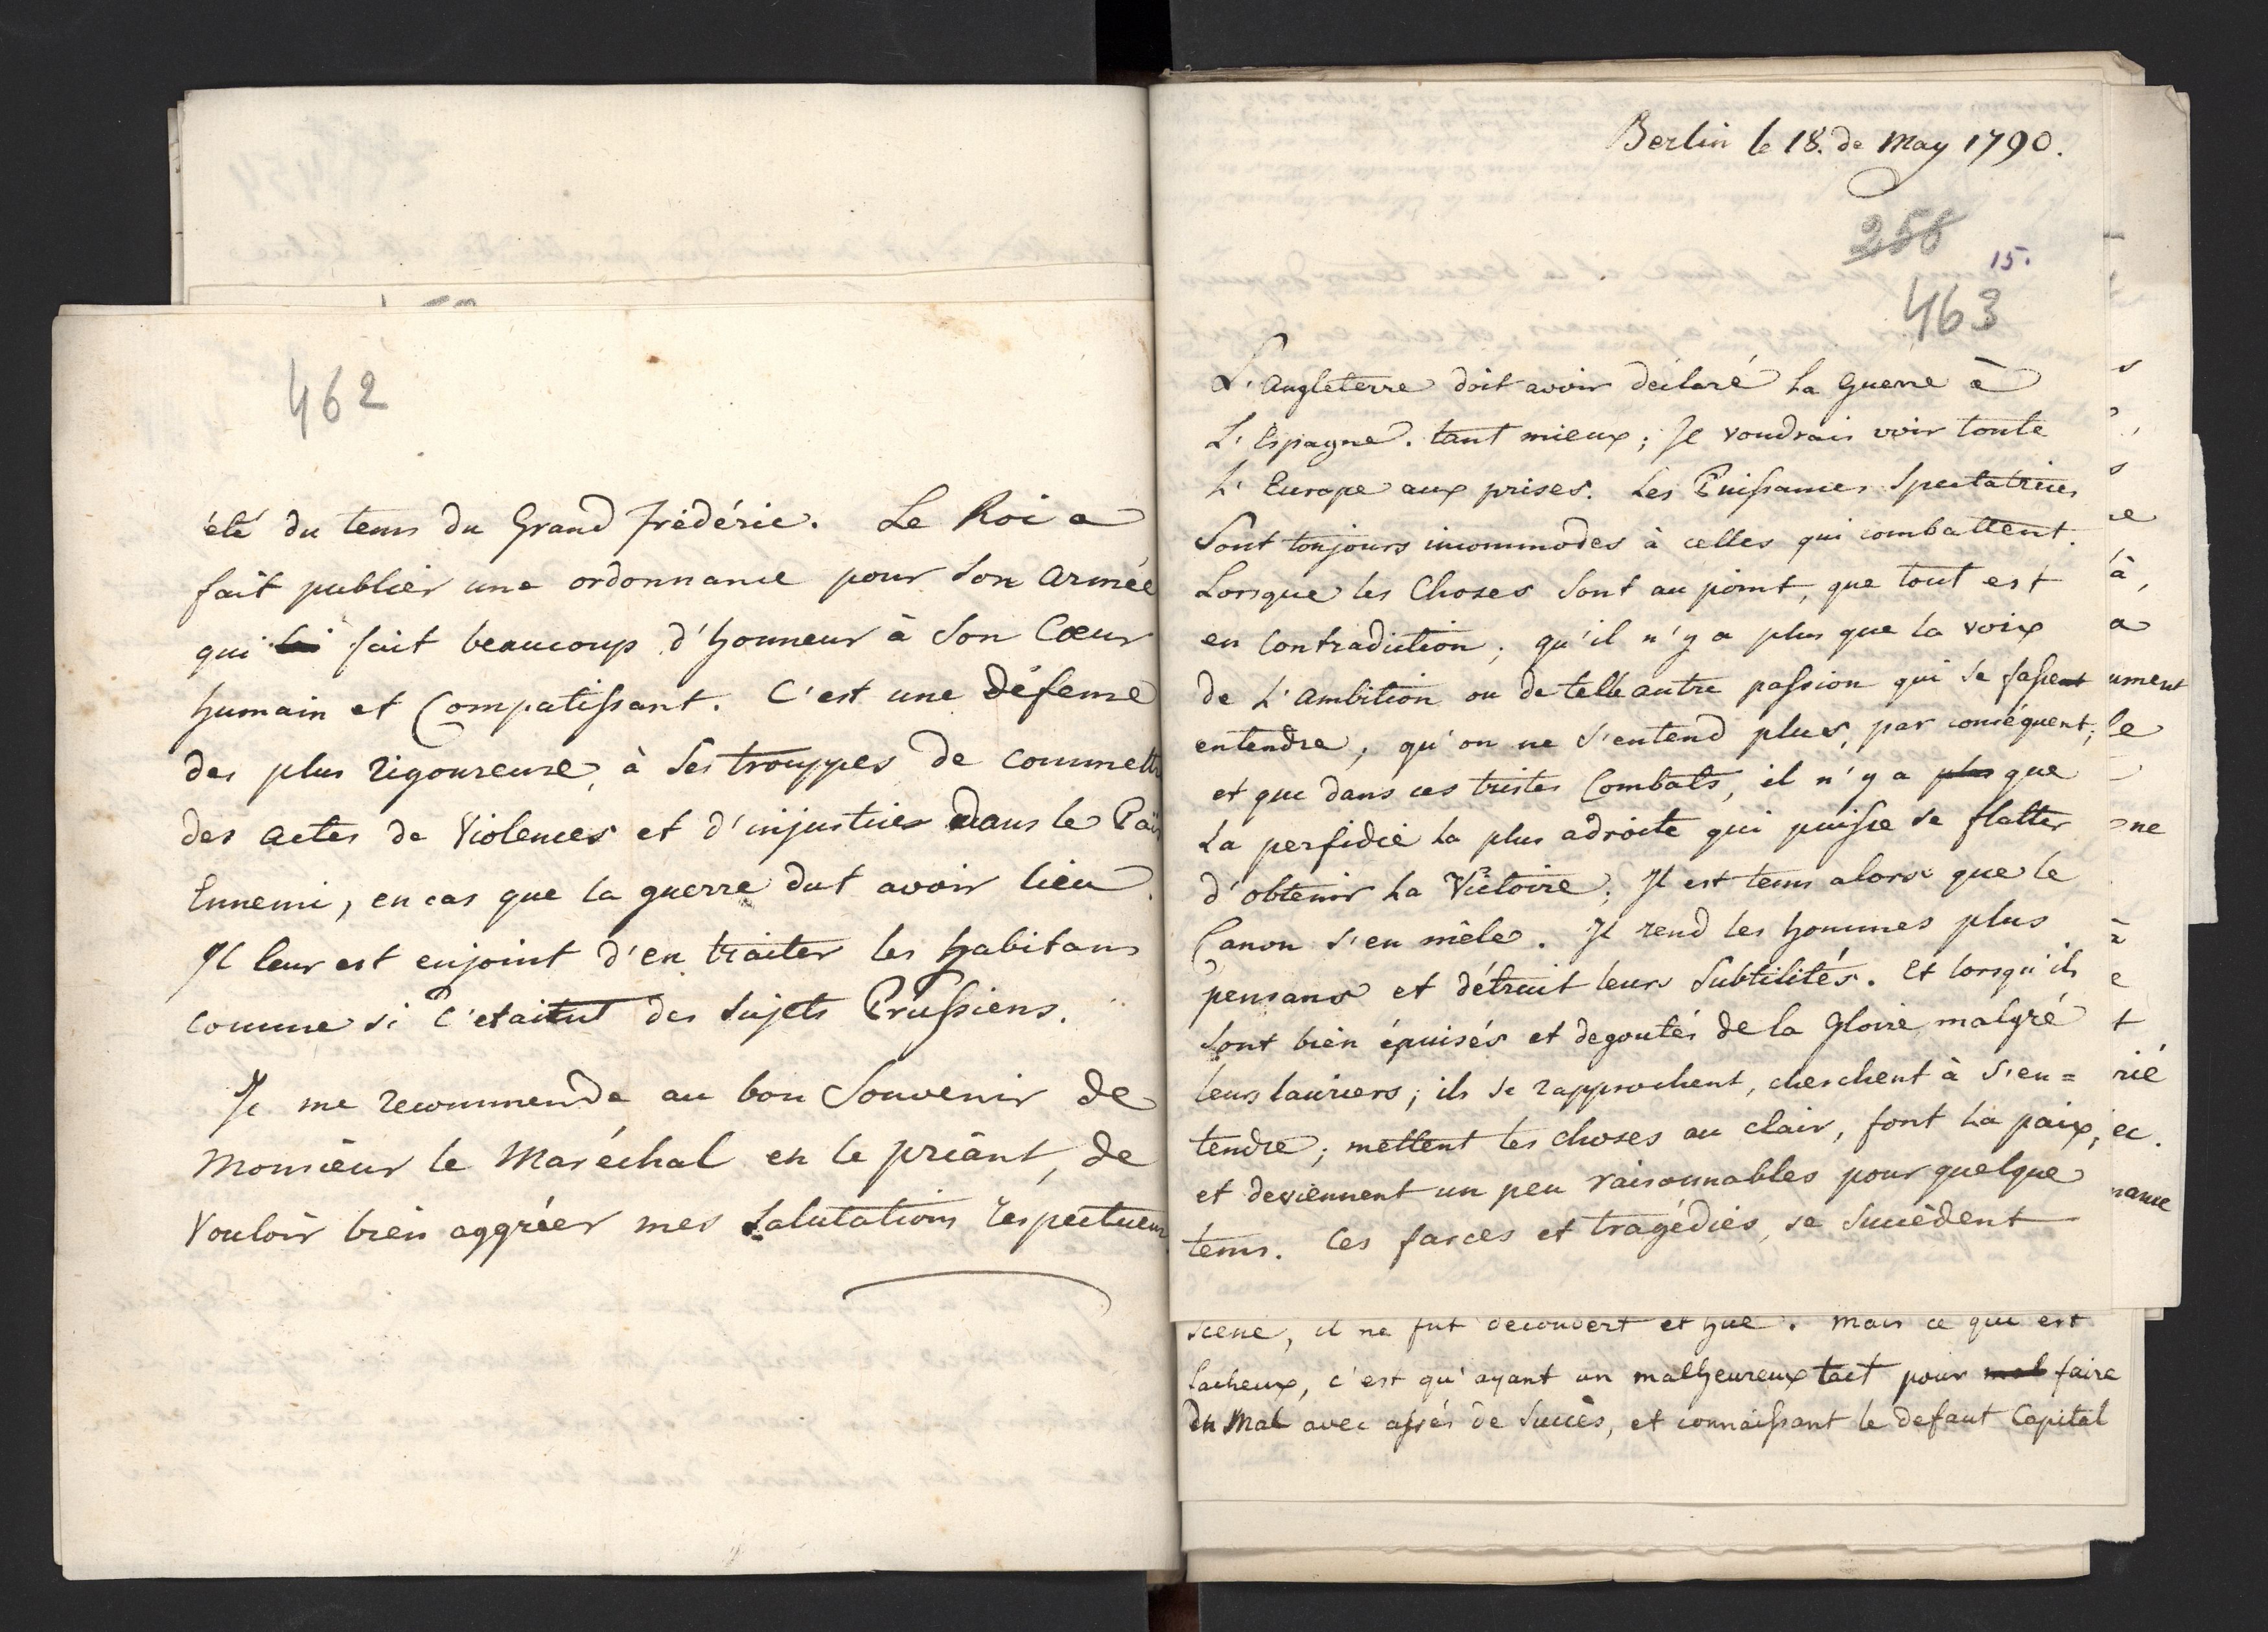 462
été du tems du Grand Frédéric. Le Roi a
fait publier une ordonnance pour son armée
qui lui fait beaucoup d'honneur à son Cœur
humain et Compatissant. C'est une défense
des plus rigoureuse, à ses trouppes de commettre
des actes de Violences et d'injustices dans le Païs
Ennemi, en cas que la guerre dut avoir lieu.
Il leur est enjoint d'en traiter les habitans
comme si c'etaitent des sujets Prussiens.
Je me recommende au bon Souvenir de
Monsieur le Maréchal en le priant, de
vouloir bien aggréer mes salutations respectueus
Berlin le 18. de May 1790.
258
15.
463
L'Angleterre doit avoir déclaré la Guerre à
L'Espagne. tant mieux; Je voudrais voir toute
L'Europe aux prises. Les Puissances Spectatrices
Sont toujours incommodes à celles qui combattent.
Lorsque les Choses sont au point, que tout est
en Contradiction; qu'il n'y a plus que la voix
de L'ambition ou de telle autre passion qui se fassent
entendre, qu'on ne s'entend plus, par conséquent;
et que dans ces tristes Combats, il n'y a plus que
la perfidie la plus adroite qui puisse se flatter
d'obtenir la Victoire; Il est tems alors que le
Canon s'en mêle. Il rend les hommes plus
pensans et détruit leurs Subtilités. Et lorsqu'ils
sont bien épuisés et degoutés de la Gloire malgré
leurs lauriers; ils se rapprochent, cherchent à s'en=
tendre; mettent les choses au clair, font la paix,
et deviennent un peu raisonnables pour quelque
tems. Ces farces et tragédies, se succèdent
scene, il ne fut decouvert et hué. Mais ce qui est
facheux, c'est qu'ayant un malheureux tact pour mal faire
du Mal avec assés de succès, et connaissant le defaut Capital